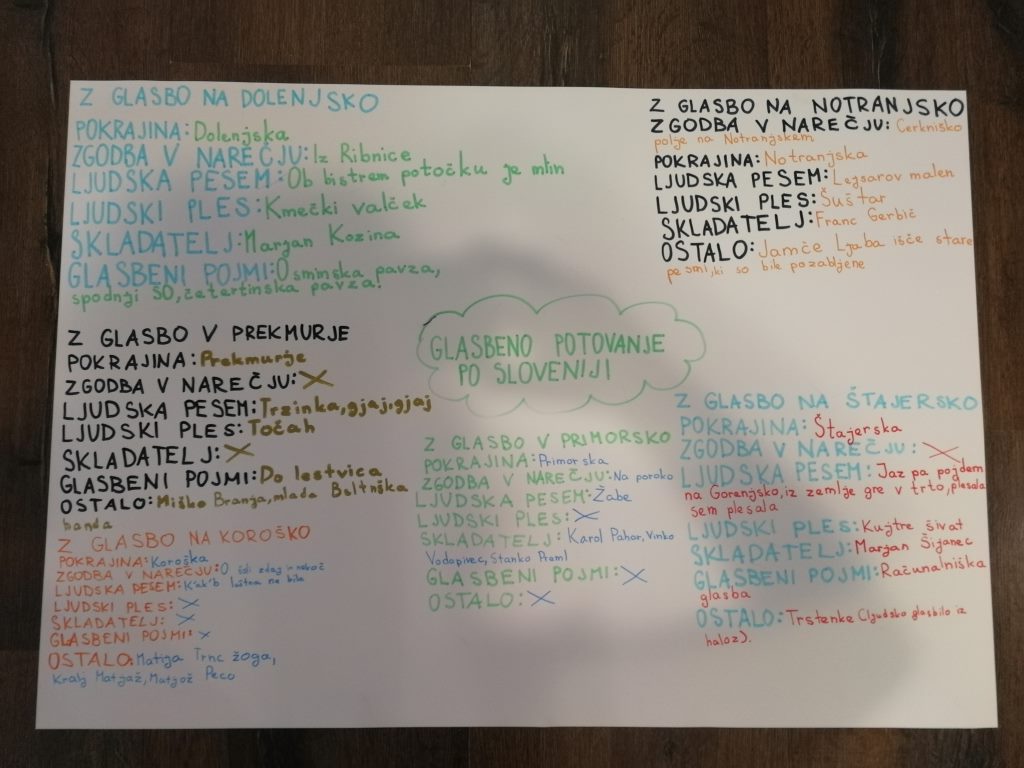 Z GLASBO NA DOLENJSKO
POKRAJINA: Dolenjska
ZGODBA V NAREČJU: Iz Ribnice
LJUDSKA PESEM: Ob bistrem potočku je mlin
LJUDSKI PLES: Kmečki valček
SKLADATELJ: Marjan Kozina
GLASBENI POJMI: Osminska pavza,
spodnji SO, četertinska pavza!
Z GLASBO NA NOTRANJSKO
ZGODBA V NAREČJU: Cerkniško
polje na Notranjskem
POKRAJINA: Notranjska
LJUDSKA PESEM: Lejsarov malen
LJUDSKI PLES: Šuštar
SKLADATELJ: Franc Gerbič
OSTALO: Jamče Ljuba išče stare
pesmi, ki so bile pozabljene
GLASBENO POTOVANJE
PO SLOVENIJI
Z GLASBO V PREKMURJE
POKRAJINA: Prekmurje
ZGODBA V NAREČJU: X
LJUDSKA PESEM: Trzinka, gjaj, gjaj
LJUDSKI PLES: Točak
SKLADATELJ: X
GLASBENI POJMI: Do lestvica
OSTALO: Miško Branja, mlada Beltnška
banda
Z GLASBO NA KOROŠKO
POKRAJINA: Koroška
ZGODBA V NAREČJU: O
LJUDSKA PESEM: Kak'b luštna ne bila
LJUDSKI PLES: X
SKLADATELJ: X
GLASBENI POJMI: X
OSTALO: Matija Trnc žoga,
Kralj Matjaž, Matjož Peco
Z GLASBO V PRIMORSKO
POKRAJINA: Primorska
ZGODBA V NAREČJU: Na poroko
LJUDSKA PESEM: Žabe
LJUDSKI PLES: X
SKLADATELJ: Karol Pahor, Vinko
Vodopivec, Stanko Preml
GLASBENI POJMI: X
OSTALO: X
Z GLASBO NA ŠTAJERSKO
POKRAJINA: Štajerska
ZGODBA V NAREČJU: X
LJUDSKA PESEM: Jaz pa pojdem
na Gorenjsko, iz zemlje gre v trto, plesala
sem plesala
LJUDSKI PLES: Kujtre šivat
SKLADATELJ: Marjan Šijanec
GLASBENI POJMI: Računalniška
glasba
OSTALO: Trstenke (ljudsko glasbilo iz
haloz).